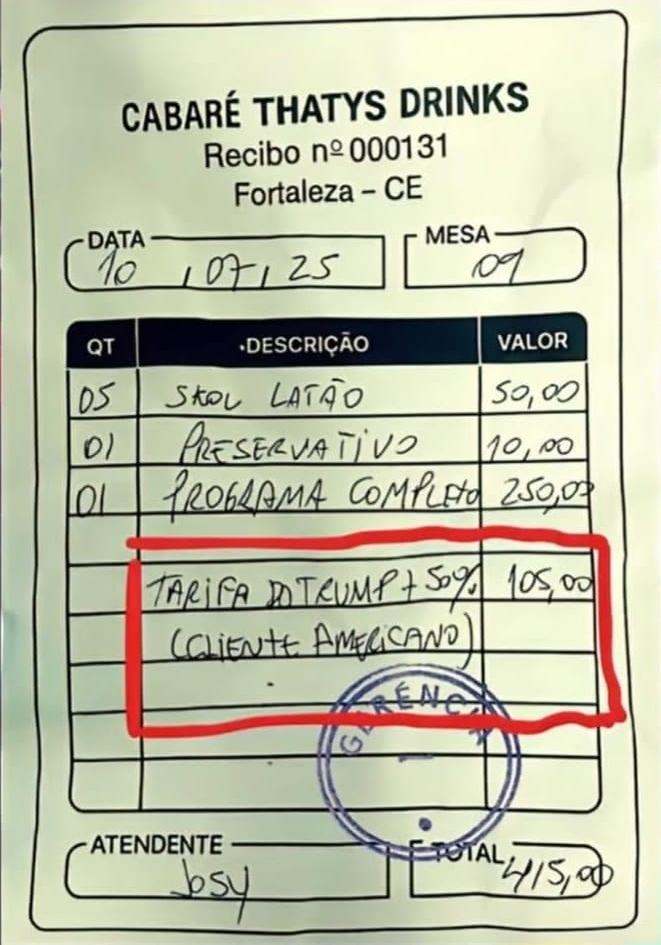 CABARÉ THATYS DRINKS
Recibo nº 000131
Fortaleza - CE
DATA 10 / 07 / 25 MESA 09
QT DESCRIÇÃO VALOR
05 SKOL LATÃO 50,00
01 PRESERVATIVO 10,00
01 PROGRAMA COMPLETO 250,00
TARIFA DO TRUMP + 50% 105,00
(CLIENTE AMERICANO)
GERÊNCIA
ATENDENTE Josy TOTAL 415,00